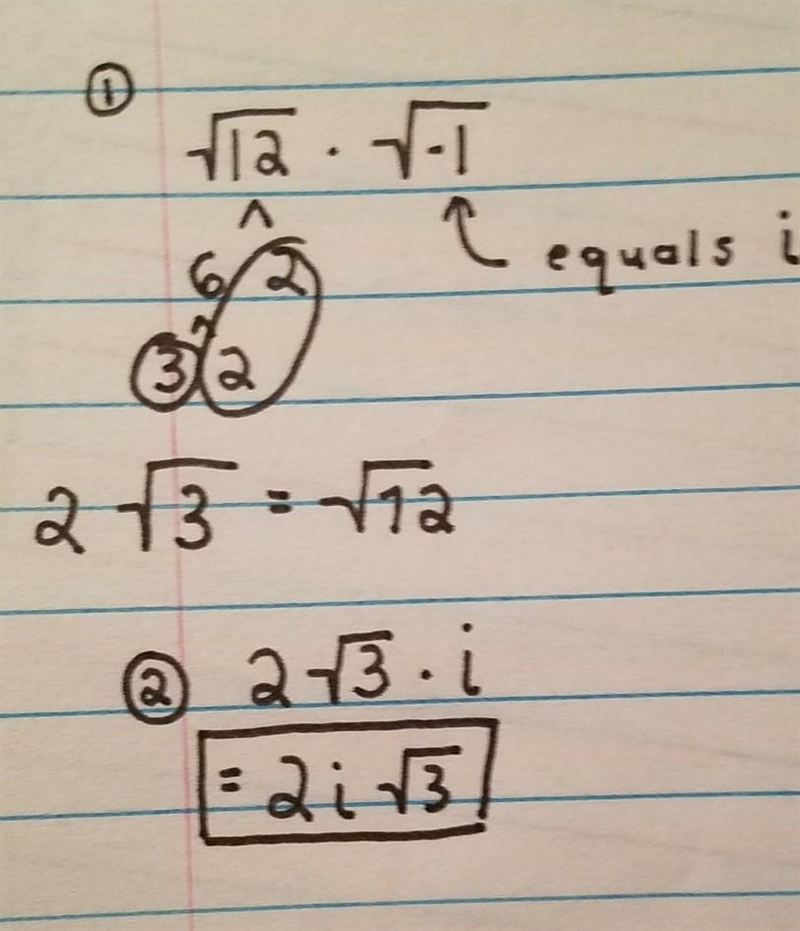 ①
√12 · √-1
^
6 2 equals i
^
3 2
2 √3 = √12
② 2√3 · i
= 2i√3